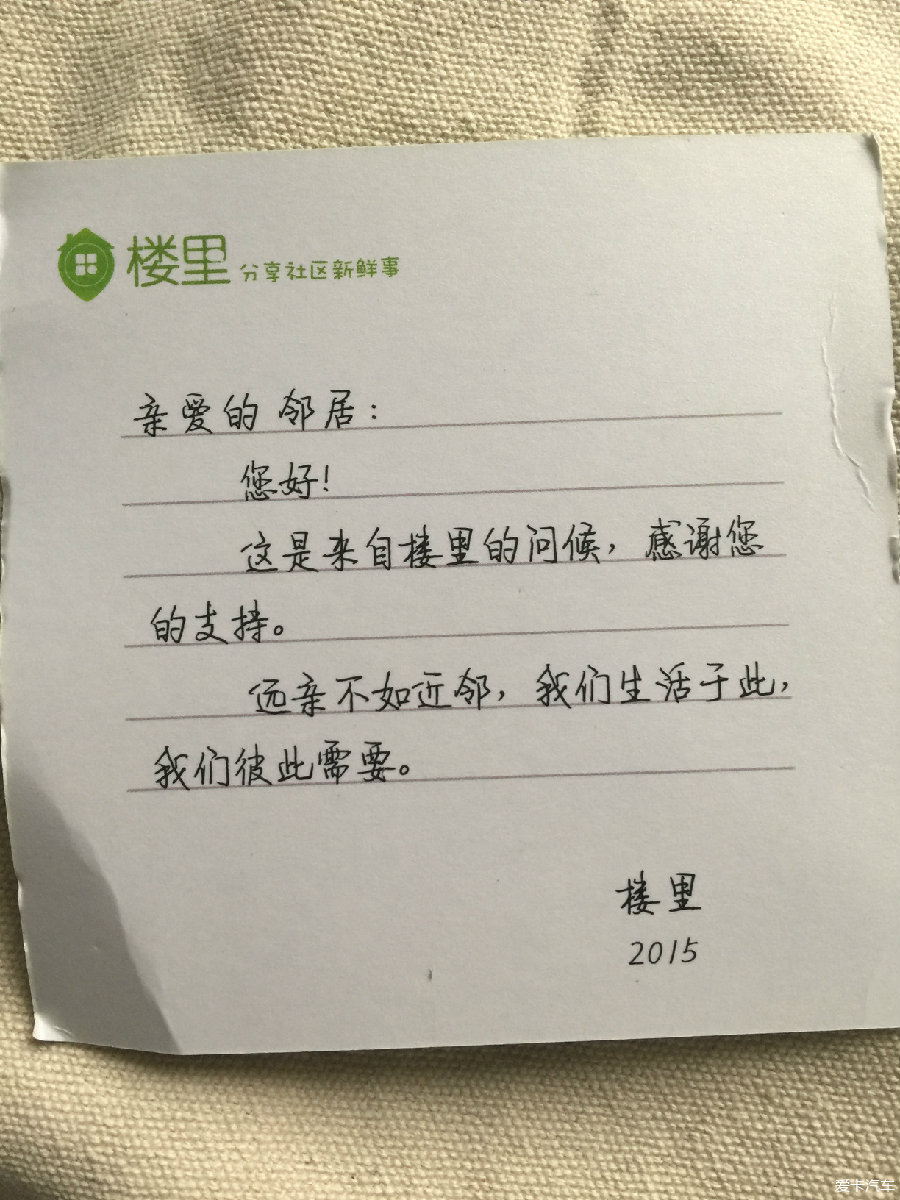 楼里 分享社区新鲜事
亲爱的邻居：
您好！
这是来自楼里的问候，感谢您
的支持。
远亲不如近邻，我们生活于此，
我们彼此需要。
楼里
2015
爱卡汽车